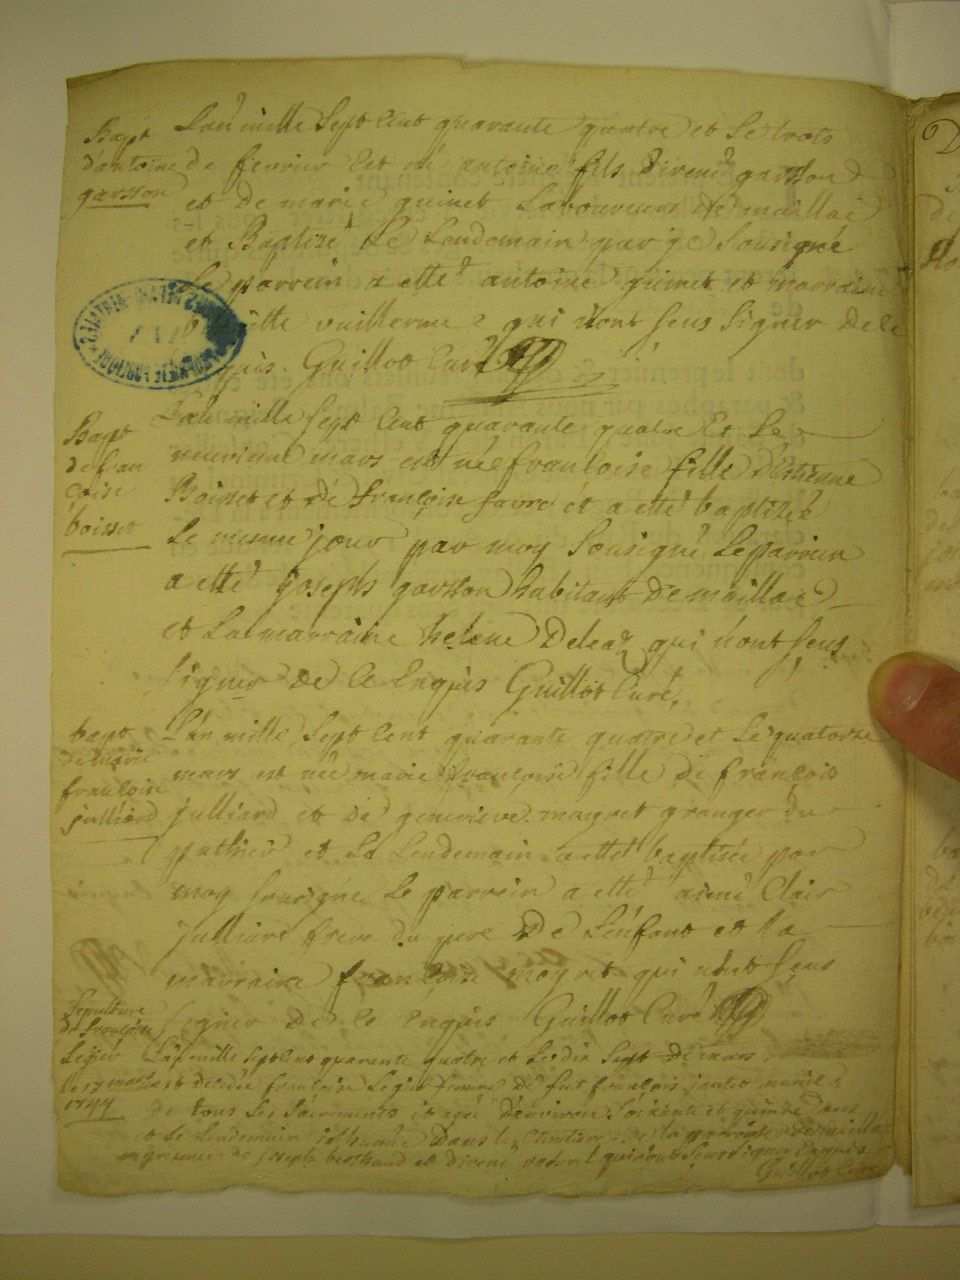 Bapt
dantoine
garsson
L'an mille sept cent quarante quatre et le trois
de fevrier est né antoine fils direné garsson
et de marie guinet Laboureurs de maillac
et Baptizé Le Lendemain par je sousigné
Le parrein a etté antoine guinet et marraine
vuillerme qui n'ont seus signer de ce
Guillot Curé
Bapt
de fran
coise
boisset
L'an mille sept cent quarante quatre Et Le
neuvieme mars est née francoise fille d'Estienne
Boisset et de françoise favre et a etté baptizée
Le mesme jour par moy sousigné Le parrein
a etté joseph garsson habitant de maillac
et La marraine helene qui n'ont seus
signer de ce Enquis Guillot Curé.
bapt
de marie
francoise
julliard
L'an mille sept cent quarante quatre et Le quatorze
mars est née marie francoise fille de françois
julliard et de genevieve maigret granger du
et La Lendemain a etté baptisée par
moy sousigné Le parrein a etté aimé Clair
Julliard frere du pere de L'enfant et La
marraine francoise moyret qui n'ont seus
signer de ce enquis Guillot Curé
sepulture
de francoise
Legier
Le 17 mars
1744
L'an mille sept cent quarante quatre et Le dix sept de mars
est decedée francoise Legier femme de fut françois
de tous Les sacrements et agé d'environ soixante et quinze ans
et Le Lendemain inhumée dans le cimetiere de la paroisse de maillac
en presence de joseph berthand et direné qui n'ont seus signer enquis
Guillot Curé